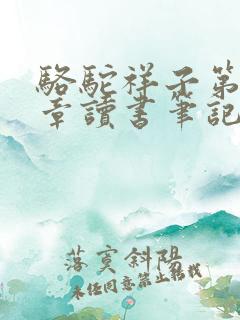 駱駝祥子第
章讀書筆記
落寞斜陽
未经同意禁止转载